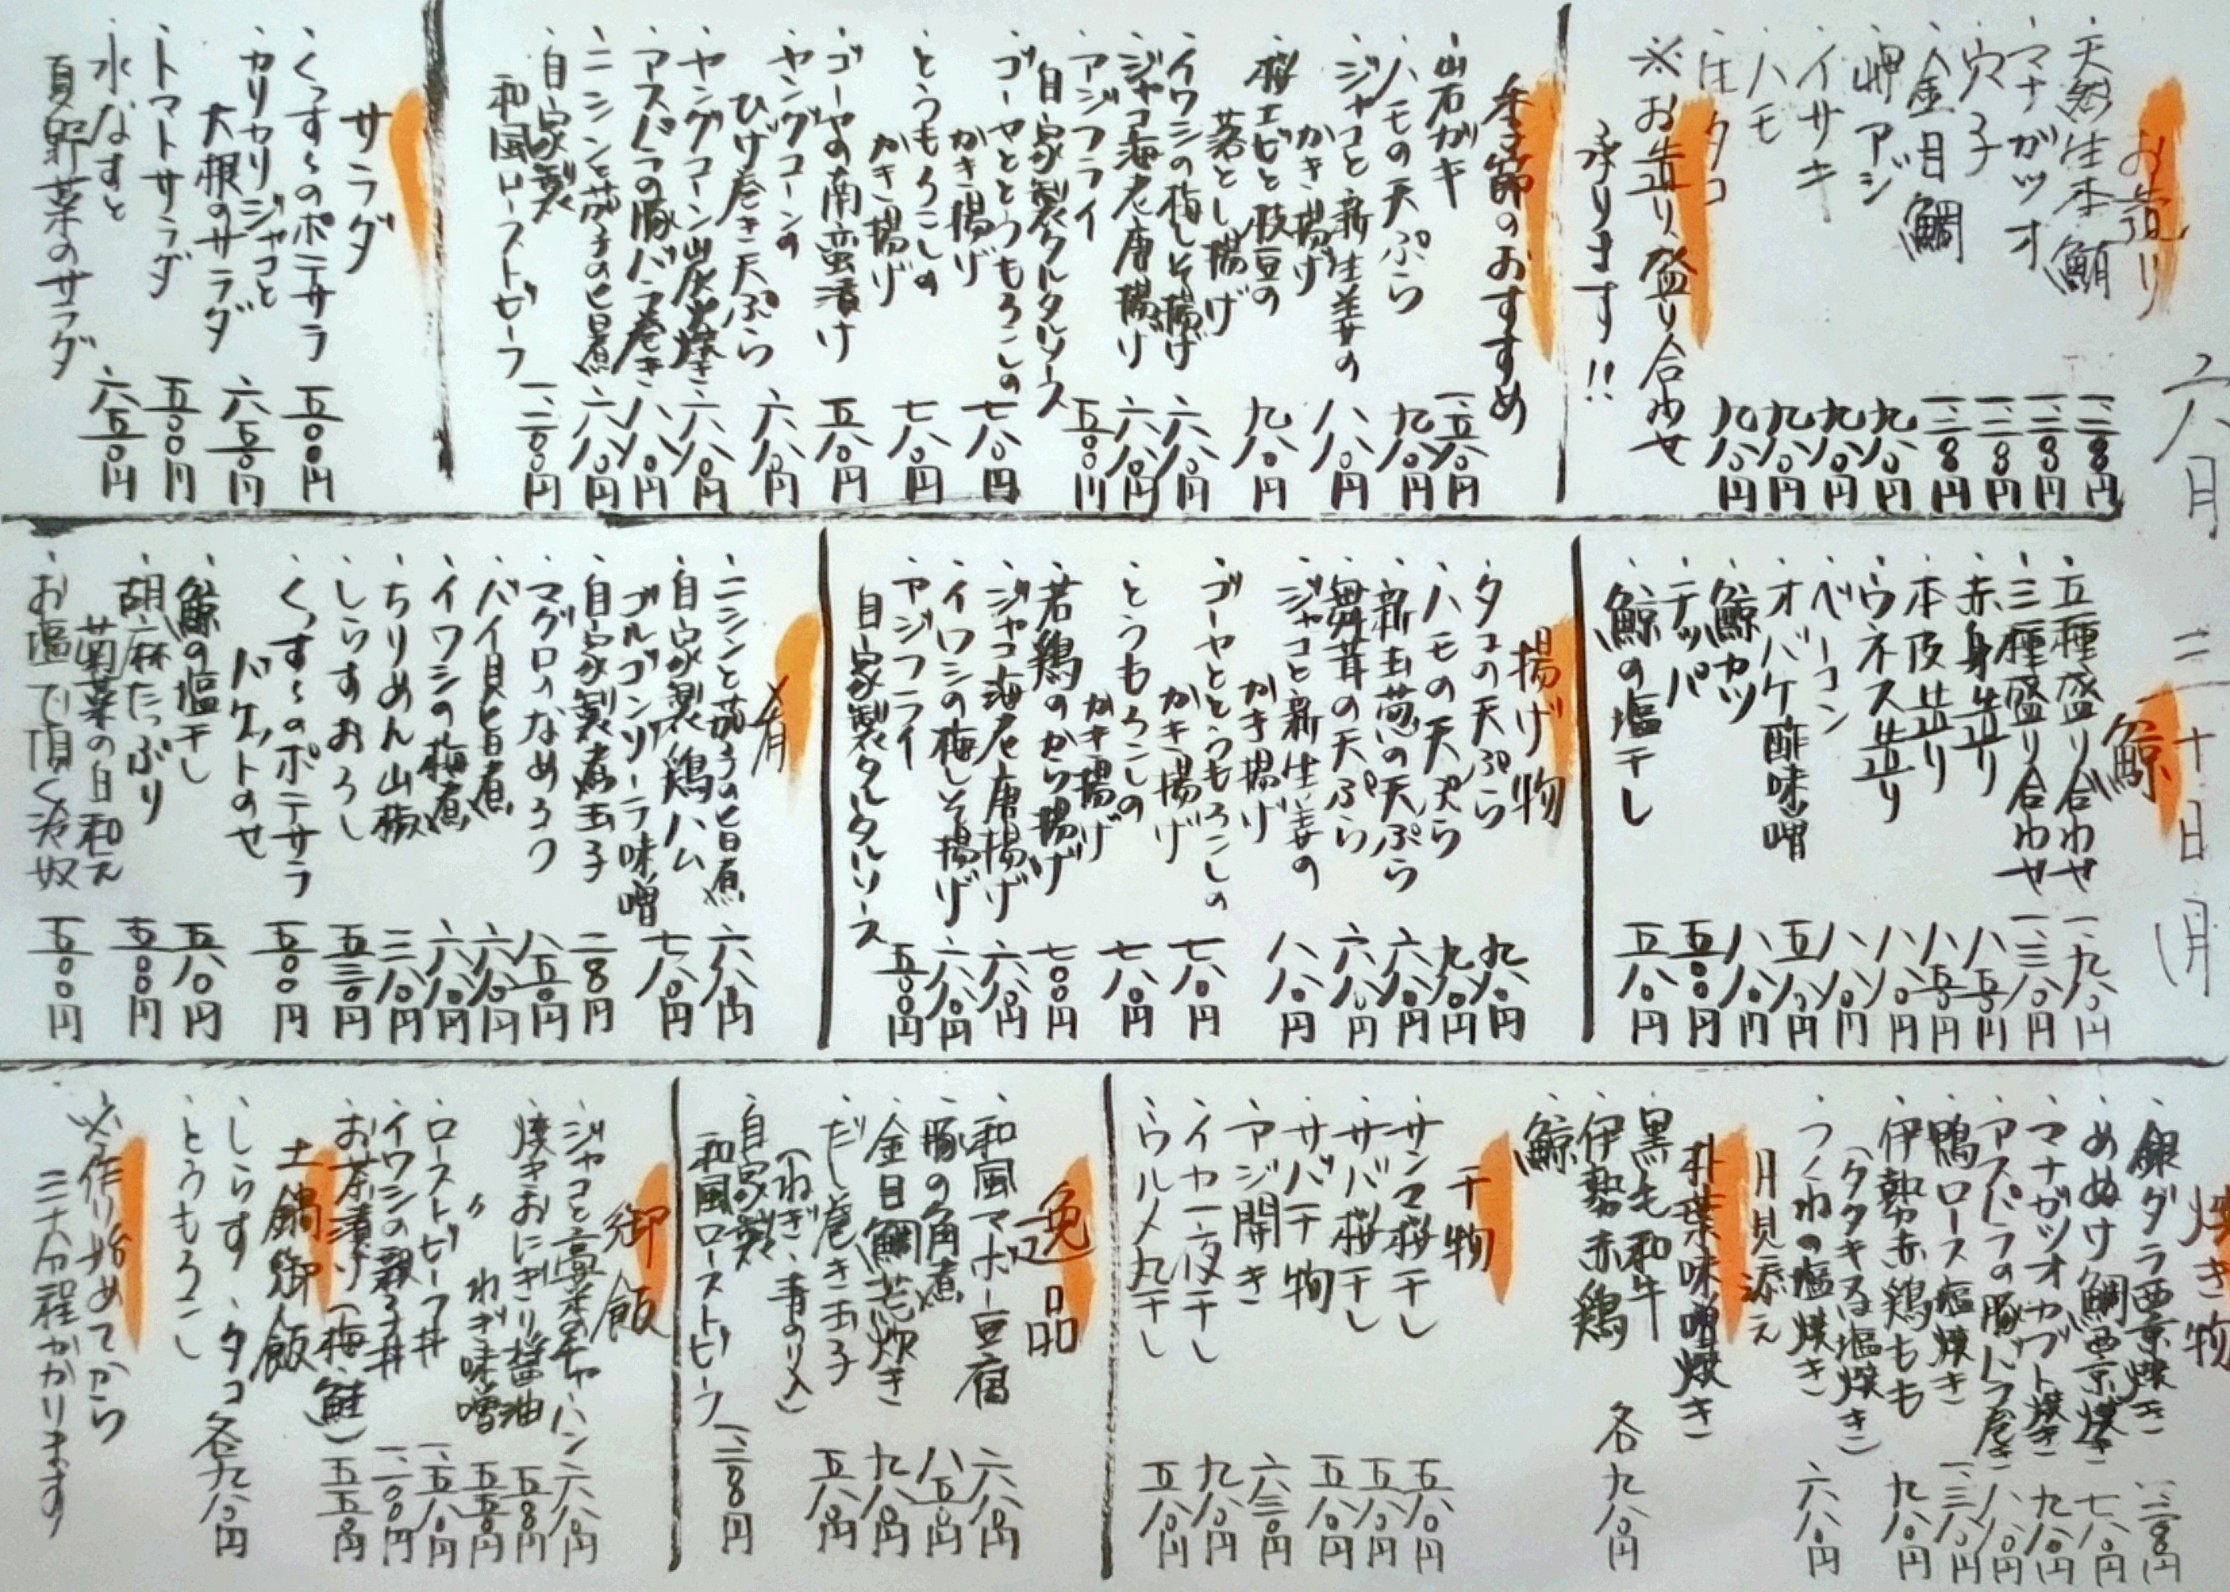 六月二十日(月)
お造り
・天然生本鮪 一、二八〇円
・マナガツオ 一、二八〇円
・穴子 一、二八〇円
・金目鯛 一、二八〇円
・岬アジ 九八〇円
・イサキ 九八〇円
・ハモ 九八〇円
・圧タコ 九八〇円
※お造り盛り合わせ
承ります!!
季節のおすすめ
・岩ガキ 一、五八〇円
・ハモの天ぷら 九八〇円
・ジャコと新生姜の
かき揚げ 八八〇円
・桜エビと枝豆の
落とし揚げ 九八〇円
・イワシの梅しそ揚げ 六八〇円
・ジャコ海老唐揚げ 六八〇円
・アジフライ
自家製タルタルソース 五〇〇円
・ゴーヤととうもろこしの
かき揚げ 七八〇円
・とうもろこしの
かき揚げ 七八〇円
・ゴーヤの南蛮漬け 五八〇円
・ヤングコーンの
ひげ巻き天ぷら 六八〇円
・ヤングコーン炭火焼き 六八〇円
・アスパラの豚バラ巻き 八八〇円
・ニシンと茄子の旨煮 六八〇円
・自家製
和風ローストビーフ 一、二八〇円
サラダ
・くっすぅのポテサラ 五〇〇円
・カリカリジャコと
大根のサラダ 六五〇円
・トマトサラダ 五〇〇円
・水なすと
夏野菜のサラダ 六五〇円
鯨
・五種盛り合わせ 一、九八〇円
・三種盛り合わせ 一、三八〇円
・赤身造り 八五〇円
・本皮造り 八五〇円
・ウネス造り 八八〇円
・ベーコン 八八〇円
・オバケ酢味噌 五八〇円
・鯨カツ 八八〇円
・テッパ 五〇〇円
・鯨の塩干し 五八〇円
揚げ物
・タコの天ぷら 九八〇円
・ハモの天ぷら 九八〇円
・新玉葱の天ぷら 六八〇円
・舞茸の天ぷら 六八〇円
・ジャコと新生姜の
かき揚げ 八八〇円
・ゴーヤととうもろこしの
かき揚げ 七八〇円
・とうもろこしの
かき揚げ 七八〇円
・若鶏のから揚げ 七〇〇円
・ジャコ海老唐揚げ 六八〇円
・イワシの梅しそ揚げ 六八〇円
・アジフライ
自家製タルタルソース 五〇〇円
肴
・ニシンと茄子の旨煮 六八〇円
・自家製鶏ハム
ゴルゴンゾーラ味噌 七八〇円
・自家製煮玉子 二八〇円
・マグロのなめろう 八五〇円
・バイ貝旨煮 六八〇円
・イワシの梅煮 六八〇円
・ちりめん山椒 三八〇円
・しらすおろし 五三〇円
・くっすぅのポテサラ
バゲットのせ 五〇〇円
・鯨の塩干し 五八〇円
・胡麻たっぷり
菊菜の白和え 五〇〇円
・お塩で頂く冷奴 五〇〇円
焼き物
・銀ダラ西京焼き 一、二八〇円
・めぬけ鯛西京焼き 七八〇円
・マナガツオカブト焼き 九八〇円
・アスパラの豚バラ巻き 八八〇円
・鴨ロース塩焼き 一、三八〇円
・伊勢赤鶏もも
(タタキ又は塩焼き) 九八〇円
・つくねの塩焼き
月見添え 六八〇円
朴葉味噌焼き
・黒毛和牛
・伊勢赤鶏
・鯨 各九八〇円
干物
・サンマ桜干し 五八〇円
・サバ桜干し 五八〇円
・サバ干物 五八〇円
・アジ開き 六三〇円
・イカ一夜干し 九八〇円
・ウルメ丸干し 五八〇円
逸品
・和風マーボー豆腐 六八〇円
・豚の角煮 八五〇円
・金目鯛荒炊き 九八〇円
・だし巻き玉子
(ねぎ、青のり入) 五八〇円
・自家製
和風ローストビーフ 一、二八〇円
御飯
・ジャコと高菜のチャーハン 六八〇円
・焼きおにぎり醤油 五五〇円
・〃 ねぎ味噌 五五〇円
・ローストビーフ丼 一、五八〇円
・イワシの親子丼 一、二〇〇円
・お茶漬け(梅・鮭) 五五〇円
土鍋御飯
・しらす ・タコ
・とうもろこし 各九八〇円
※作り始めてから
三十分程かかります